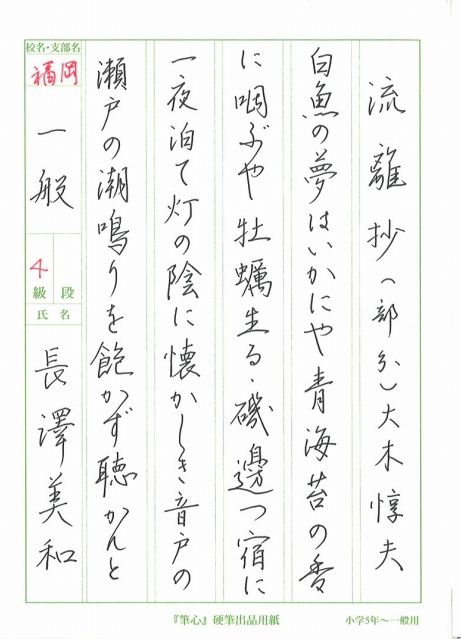 流離抄(部分)大木惇夫
白魚の夢はいかにや青海苔の香
に咽ぶや牡蠣生る、磯邊つ宿に
一夜泊て灯の陰に懐かしき音戸の
瀬戸の潮鳴りを飽かず聴かんと
校名・支部名
福岡
一般
4
級 段
氏名
長澤美和
『筆心』硬筆出品用紙
小学5年～一般用